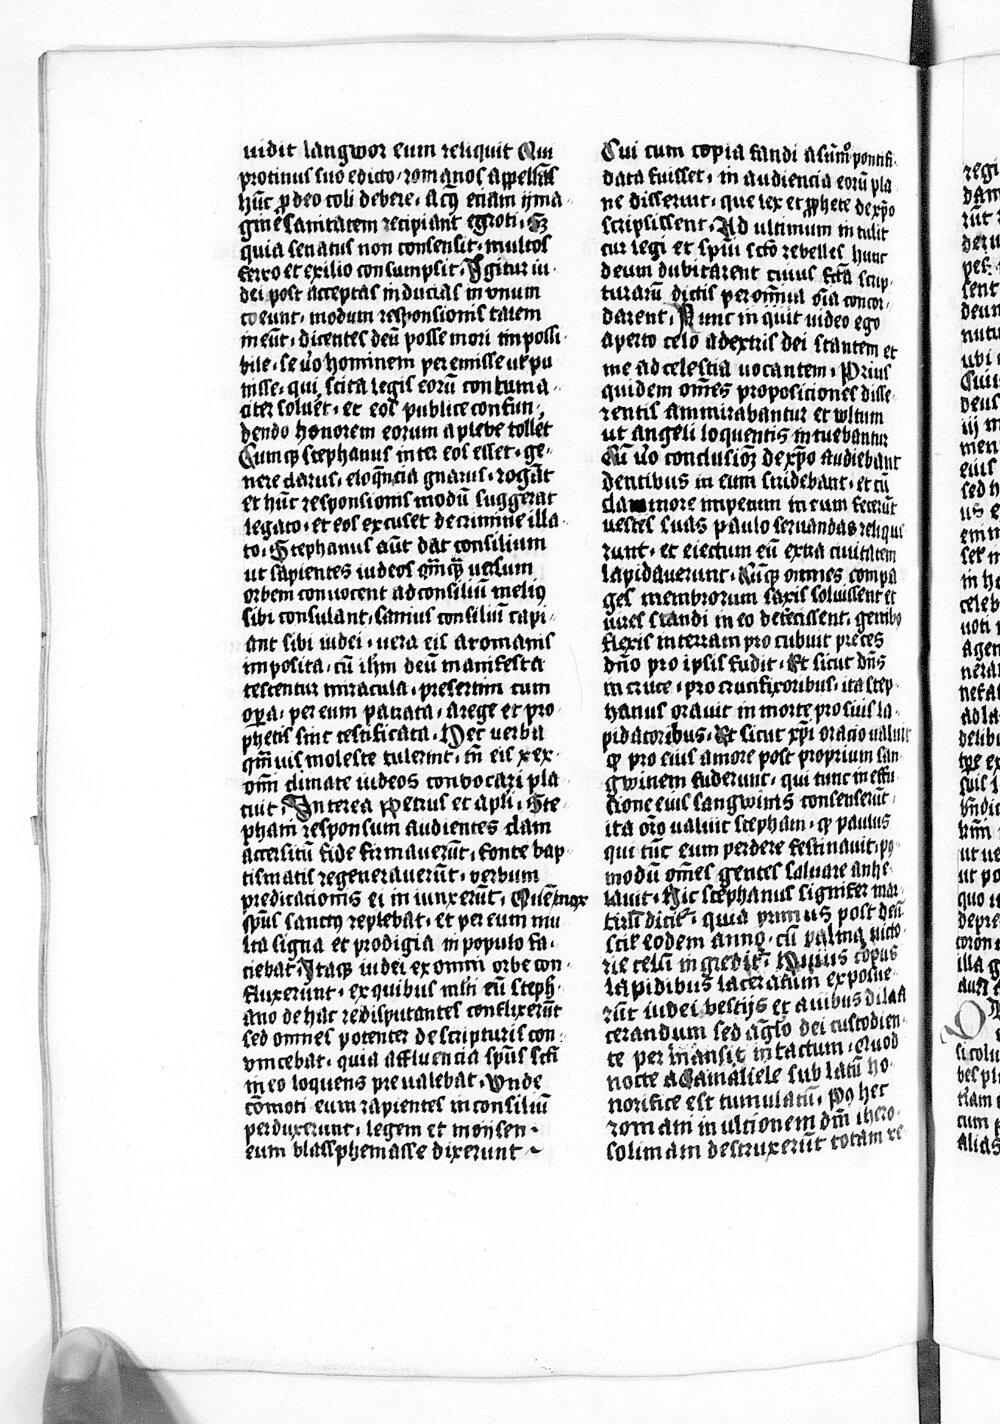 uidit langwor eum reliquit Qui
protinus suo edicto · romanos appellās
hūc p deo coli debere · a cuꝰ etiam yma
gīe sanitatem recipiant egroti · Sꝫ
quia senatus non consensit · multos
ferro et exilio consumpsit · Igitur iu
dei post acceptas inducias in vnum
coeunt · modum responsionis talem
ineūt · dicentes deū posse mori impossi
bile · se v̊o hominem peremisse ut pu
nisse · qui scita legis eorū contuma
citer soluēt · et eos publice confun
dendo honorem eorum a plebe tollet
Cumqꝫ stephanus inter eos esset · ge
nere clarus · eloq̄ncia gnarus · rogāt
et hūc responsionis modū suggerat
legato · et eos excuset de crimine illa
to · Stephanus aūt dat consilium
ut sapientes iudeos q̄mqꝫ versum
orbem conuocent ad consiliū melius
sibi consulant · sanius consiliū capi
ant sibi iudei · uera eis a romanis
imposita · cū ihm deū manifesta
testentur miracula · presertim cum
oꝑa · per eum patrata · a rege et pro
phetis sint testificata · Hec verba
qm̄uis moleste tulerint · tn̄ eis ex ex
om̄i climate iudeos conuocari pla
cuit · Interea Petrus et apl̄i · Ste
phani responsum audientes clam
accersitū fide firmauerūt · fonte bap
tismatis regenerauerūt · verbum
predicationis ei iniunxerūt · Quē mox
sp̄us sanctꝰ replebat · et per eum mu
lta signa et prodigia in populo fa
ciebat · Itaqꝫ iudei ex omni orbe con
fluxerunt · ex quibus ml̄ti cū steph
ano de hac re disputantes conflixerūt
sed omnes potenter de scripturis con
vincebat · quia affluencia sp̄us sc̄ti
in eo loquens preualebat · Vnde
cōmoti eum rapientes in consiliū
perduxerunt · legem et moysen
eum blasphemasse dixerunt ~
Cui cum copia fandi a sūmo pontifi
data fuisset · in audiencia eorū pla
ne disseruit · que lex et ꝓphete de xp̄o
scripsissent · Ad ultimum intulit
cur legi et sp̄ui sc̄to rebelles hunc
deum dubitarent cuius fc̄ta scrip
turarū dictis per omnia oīa concor
darent · Nunc inquit video ego
aperto celo a dextris dei stantem et
me ad celestia uocantem · Prius
quidem om̄es proposiciones disse
rentis ammirabantur et wltum
ut angeli loquentis intuebantur
Cū v̊o conclusiōꝫ de xp̄o audiebant
dentibus in eum stridebant · et cū
clamore impetum in eum fecerūt
uestes suas paulo seruandas reliqui
runt · et eiectum eū extra ciuitatem
lapidauerunt · Cūqꝫ omnes compa
ges membrorum saxis soluissent et
uires standi in eo defecissent · genibꝰ
flexis in terram procubuit preces
dn̄o pro ipsis fudit · Et sicut dn̄s
in cruce · pro crucifixoribus · ita step
hanus orauit in morte pro suis la
pidatoribus · Et sicut xp̄i oracio ualuit
qꝫ pro eius amore post proprium san
gwinem fuderunt · qui tunc in effu
sione eius sangwinis consenserūt ·
ita or̄o ualuit stephani · qꝫ paulus
qui tūc eum perdere festinauit · po
modū om̄es gentes saluare anhe
lauit · Hic stephanus signifer mar
tirū dicit̄ · quia primus post deū
scil̄ eodem anno · cū palma victo
rie celū ingredit̄ · Huius corpus
lapidibus laceratum exposue
rūt iudei bestijs et auibus dilaa
cerandum sed ag̅lo dei custodien
te permansit intactum · Quod
nocte a Gamaliele sub latū ho
norifice est tumulatū · Po hec
romani in ulcionem dn̄i ihero
solimam destruxerūt totam re